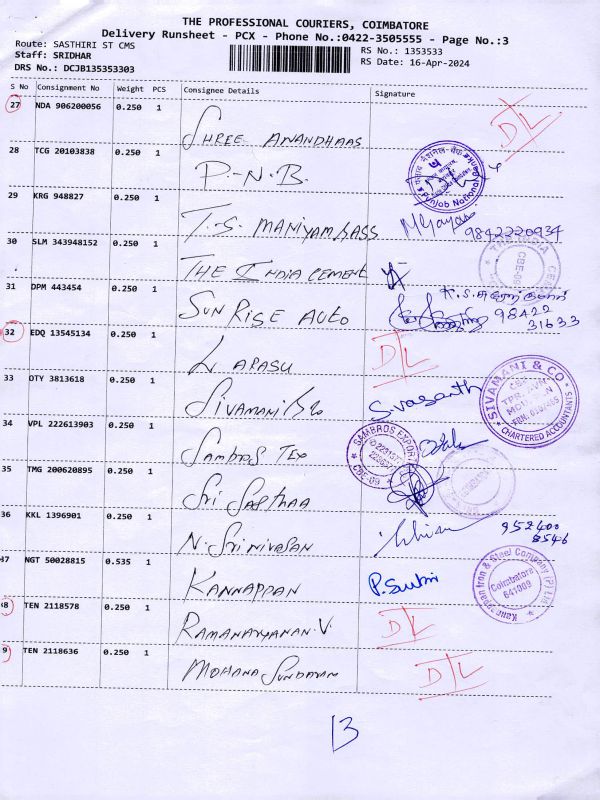 THE PROFESSIONAL COURIERS, COIMBATORE
Delivery Runsheet - PCX - Phone No.:0422-3505555 - Page No.:3
Route: SASTHIRI ST CMS
Staff: SRIDHAR
DRS No.: DCJB135353303
RS No.: 1353533
RS Date: 16-Apr-2024
S No Consignment No Weight PCS Consignee Details Signature
27 NDA 906200056 0.250 1 SHREE ANANDHAAS DL
28 TCG 20103838 0.250 1 P-N.B. Punjab National
29 KRG 948827 0.250 1 T.S. MANIYAM 9842220934
30 SLM 343948152 0.250 1 THE INDIA CEMENT THE INDIA
31 DPM 443454 0.250 1 SUN RISE AUTO 98422 31633
32 EDQ 13545134 0.250 1 L ARASU DL
33 OTY 3813618 0.250 1 SIVAMANI & Co S.Vasanth SIVAMANI & CO CHARTERED ACCOUNTANTS
34 VPL 222613903 0.250 1 SAMBROS TEX SAMBROS EXPORT
35 TMG 200620895 0.250 1 SRI SASTHAA
36 KKL 1396901 0.250 1 N. SRINIVASAN 952400 8546
37 NGT 50028815 0.535 1 KANNAPPAN P. Kannappan Iron & Steel Company (P) Ltd Coimbatore 641009
38 TEN 2118578 0.250 1 RAMANAYANAN.V. DL
9 TEN 2118636 0.250 1 MOHANA SUNDARAM DL
13